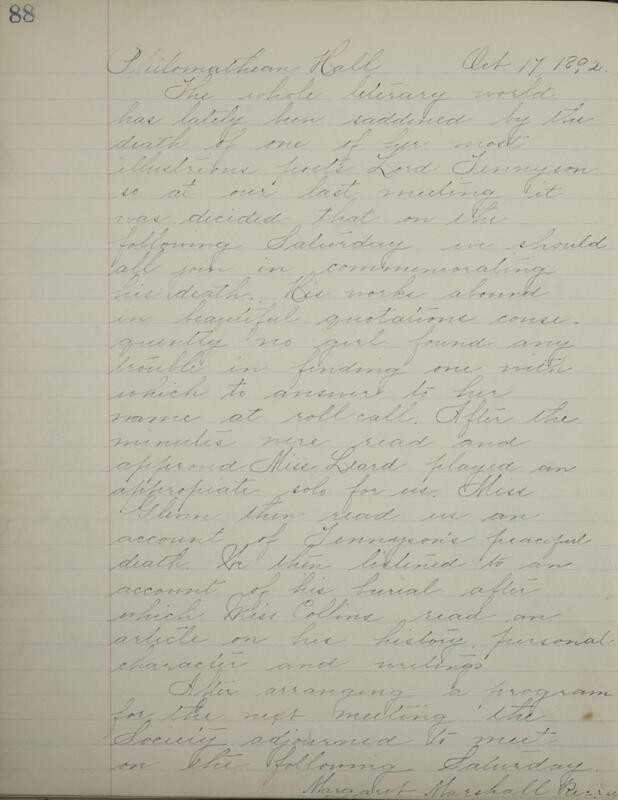 88
Philomathean Hall Oct 17, 1892.
The whole literary world
has lately been saddened by the
death of one of her most
illustrious poets Lord Tennyson
so at our last meeting it
was decided that on the
following Saturday we should
all join in commemorating
his death. His works abound
in beautiful quotations conse-
quently no girl found any
trouble in finding one with
which to answer to her
name at roll call. After the
minutes were read and
approved Miss Leard played an
appropiate solo for us. Miss
Glenn then read us an
account of Tennyson's peaceful
death. We then listened to an
account of his burial after
which Miss Collins read an
article on his history, personal
character and writings.
After arranging a program
for the next meeting the
Society adjourned to meet
on the following Saturday.
Margaret Marshall